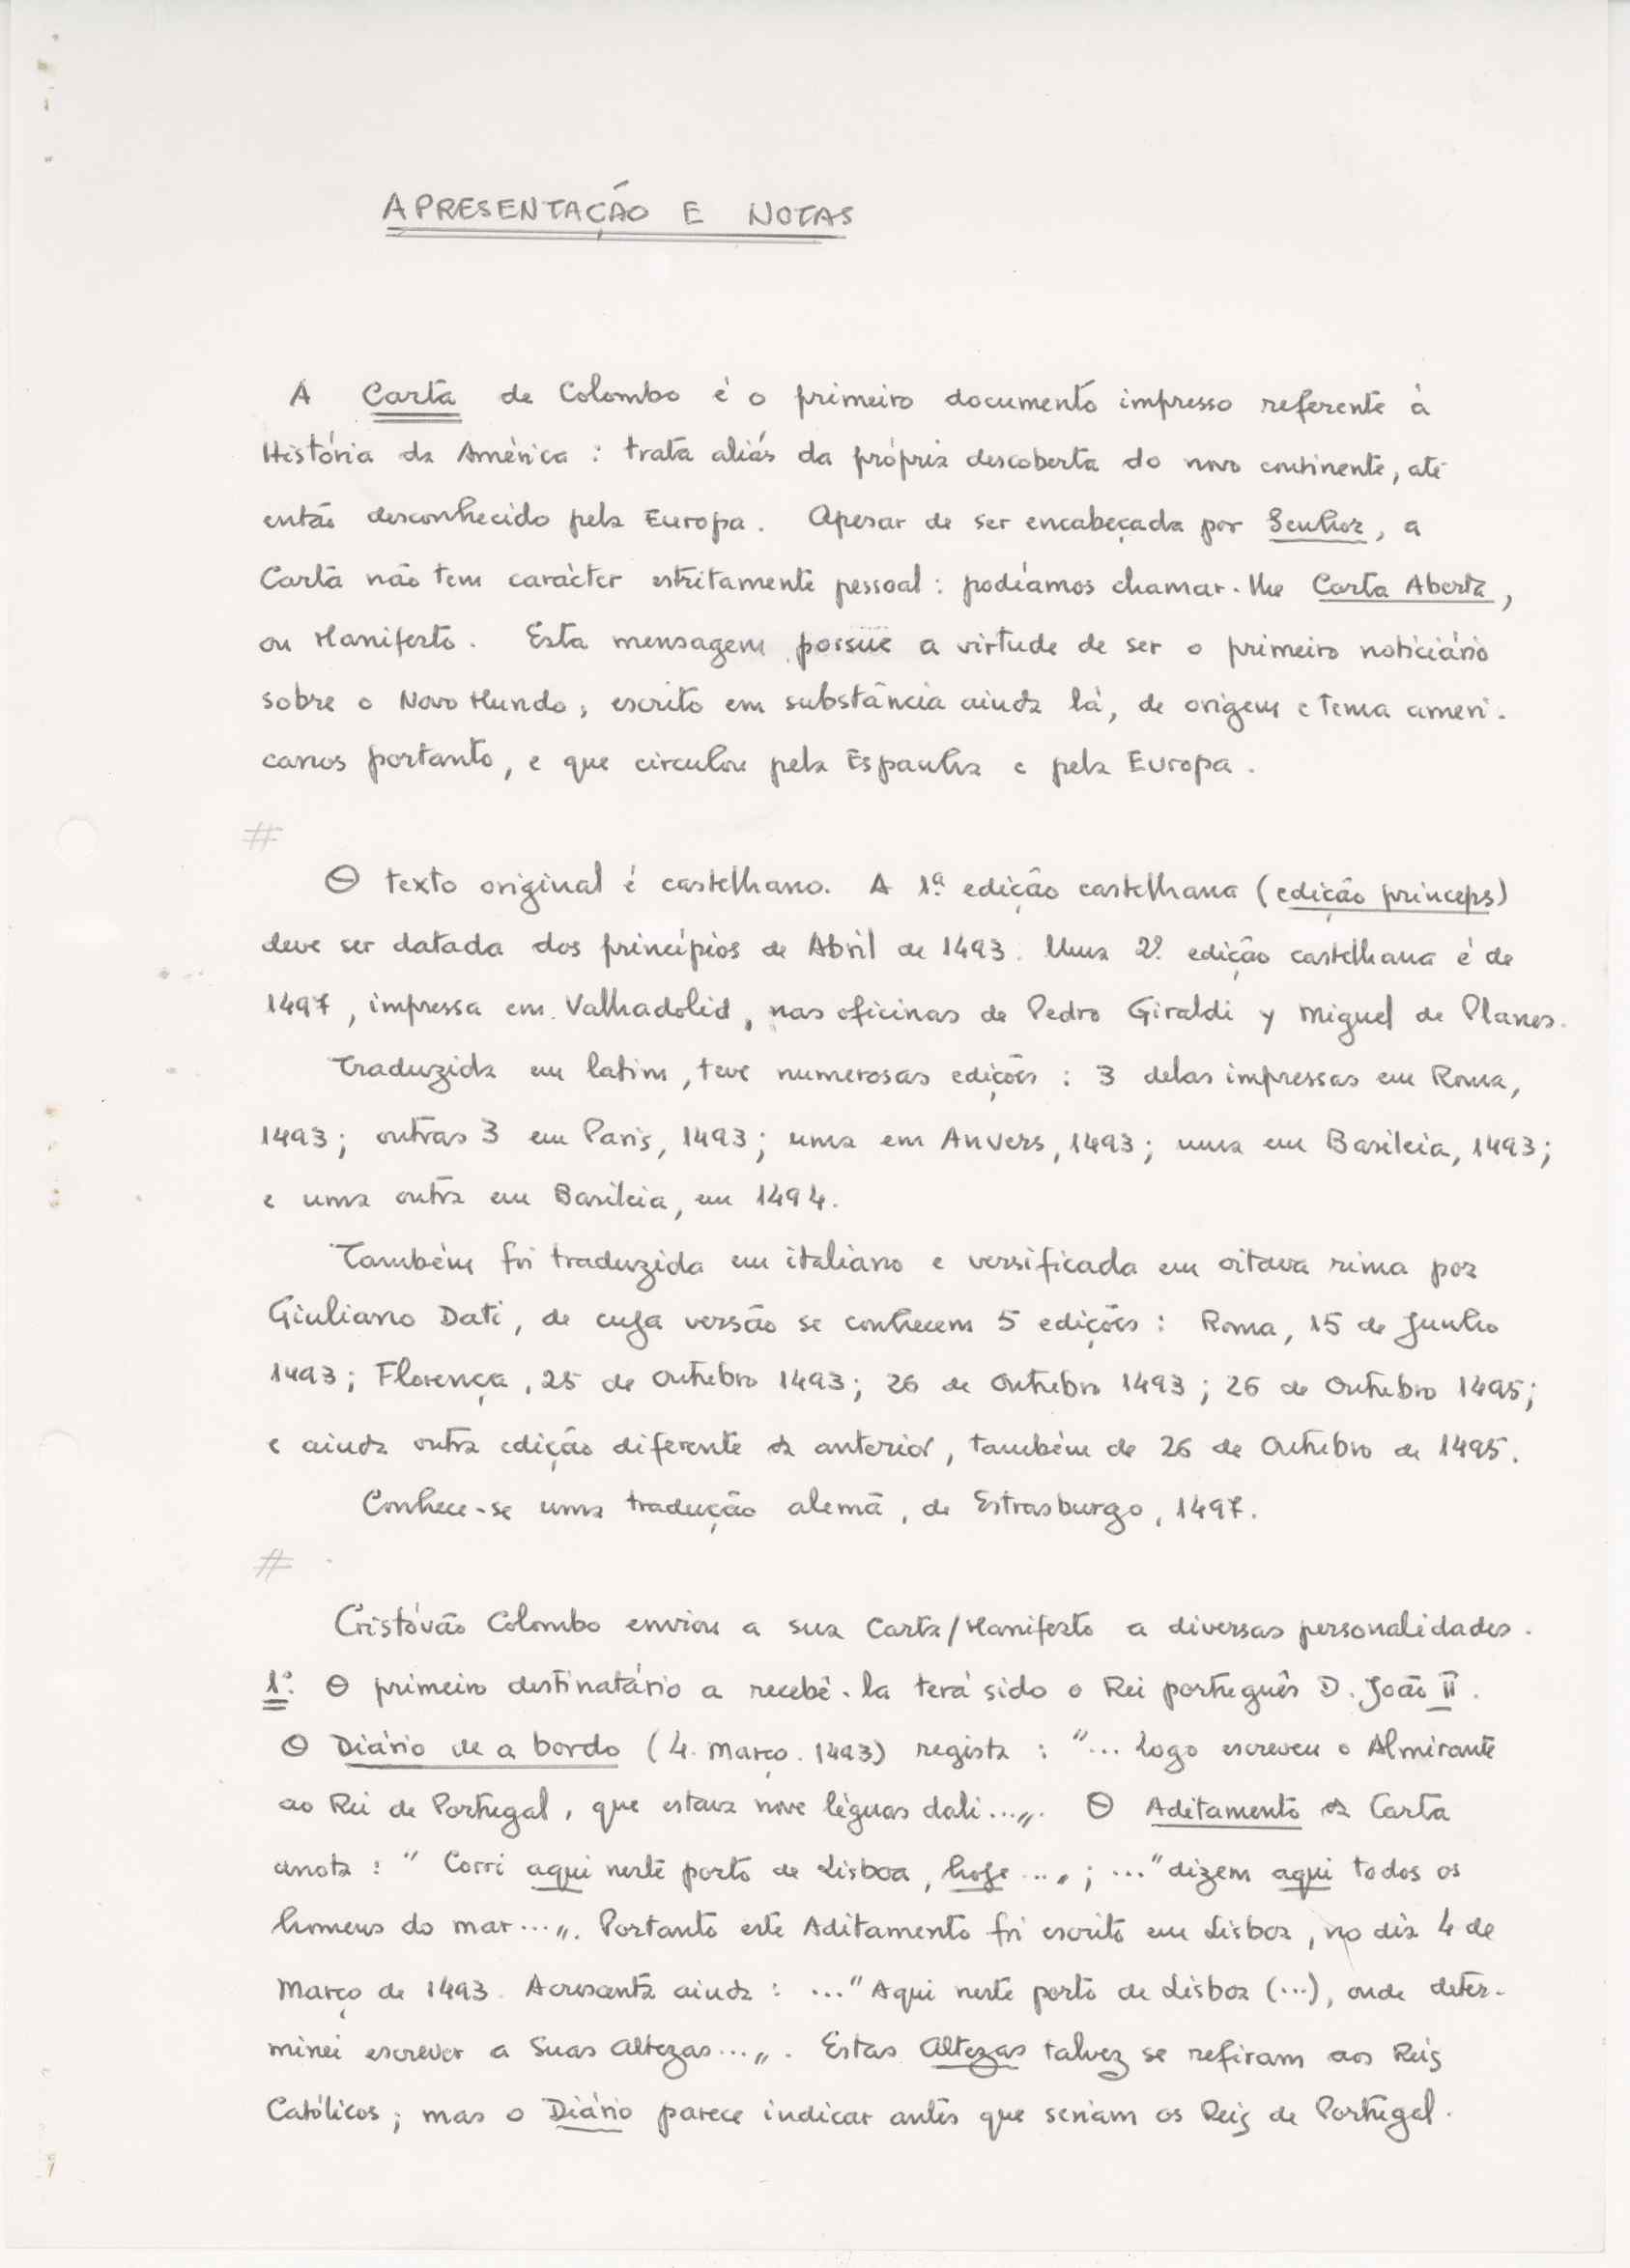 APRESENTAÇÃO E NOTAS
A Carta de Colombo é o primeiro documento impresso referente à
História da América : trata aliás da própria descoberta do novo continente, até
então desconhecido pela Europa. Apesar de ser encabeçada por Senhor, a
Carta não tem carácter estritamente pessoal : podíamos chamar-lhe Carta Aberta,
ou Manifesto. Esta mensagem possue a virtude de ser o primeiro noticiário
sobre o Novo Mundo, escrito em substância ainda lá, de origem e tema ameri-
canos portanto, e que circulou pela Espanha e pela Europa.
#
O texto original é castelhano. A 1ª edição castelhana (edição princeps)
deve ser datada dos princípios de Abril de 1493. Uma 2ª edição castelhana é de
1497, impressa em Valhadolid, nas oficinas de Pedro Giraldi y Miguel de Planes.
Traduzida em latim, teve numerosas edições : 3 delas impressas em Roma,
1493; outras 3 em Paris, 1493; uma em Anvers, 1493; uma em Basileia, 1493;
e uma outra em Basileia, em 1494.
Também foi traduzida em italiano e versificada em oitava rima por
Giuliano Dati, de cuja versão se conhecem 5 edições : Roma, 15 de Junho
1493; Florença, 25 de Outubro 1493; 26 de Outubro 1493; 26 de Outubro 1495;
e ainda outra edição diferente da anterior, também de 26 de Outubro de 1495.
Conhece-se uma tradução alemã, de Estrasburgo, 1497.
#
Cristóvão Colombo enviou a sua Carta/Manifesto a diversas personalidades.
1º: O primeiro destinatário a recebê-la terá sido o Rei português D. João II.
O Diário de a bordo (4. Março. 1493) regista : "... Logo escreveu o Almirante
ao Rei de Portugal, que estava nove léguas dali...". O Aditamento da Carta
anota : "Corri aqui neste porto de Lisboa, hoje..." ; ..."dizem aqui todos os
homens do mar...". Portanto este Aditamento foi escrito em Lisboa, no dia 4 de
Março de 1493. Acrescenta ainda : ..."Aqui neste porto de Lisboa (...), onde deter-
minei escrever a Suas Altezas...". Estas Altezas talvez se refiram aos Reis
Católicos; mas o Diário parece indicar antes que seriam os Reis de Portugal.